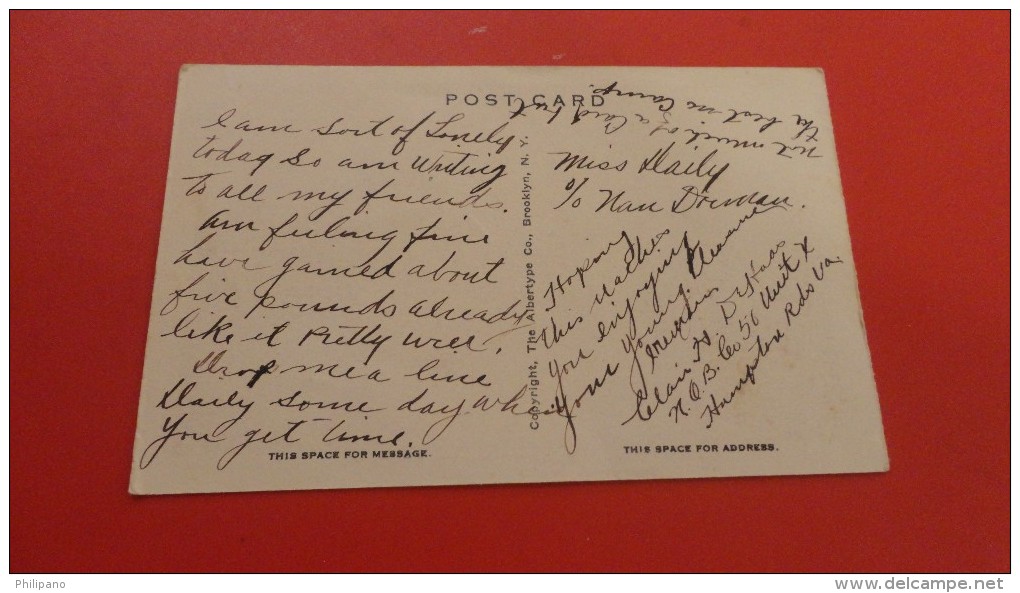 POST CARD
I am Sort of Lonely
today So am Writing
to all my friends.
am feeling fine
have gained about
five pounds already
like it Pretty well.
Drop me a line
Daily some day when
You get time.
THIS SPACE FOR MESSAGE.
Copyright, The Albertype Co., Brooklyn, N. Y.
not much of a Card but
the best in Camp.
Miss Daily
c/o Nan Dorman.
Hoping
this
You enjoying
your young
Clair H. DeHaas
N.O.B. Co 56 Unit X
Hampton Rds Va.
THIS SPACE FOR ADDRESS.
Philipano
www.delcampe.net